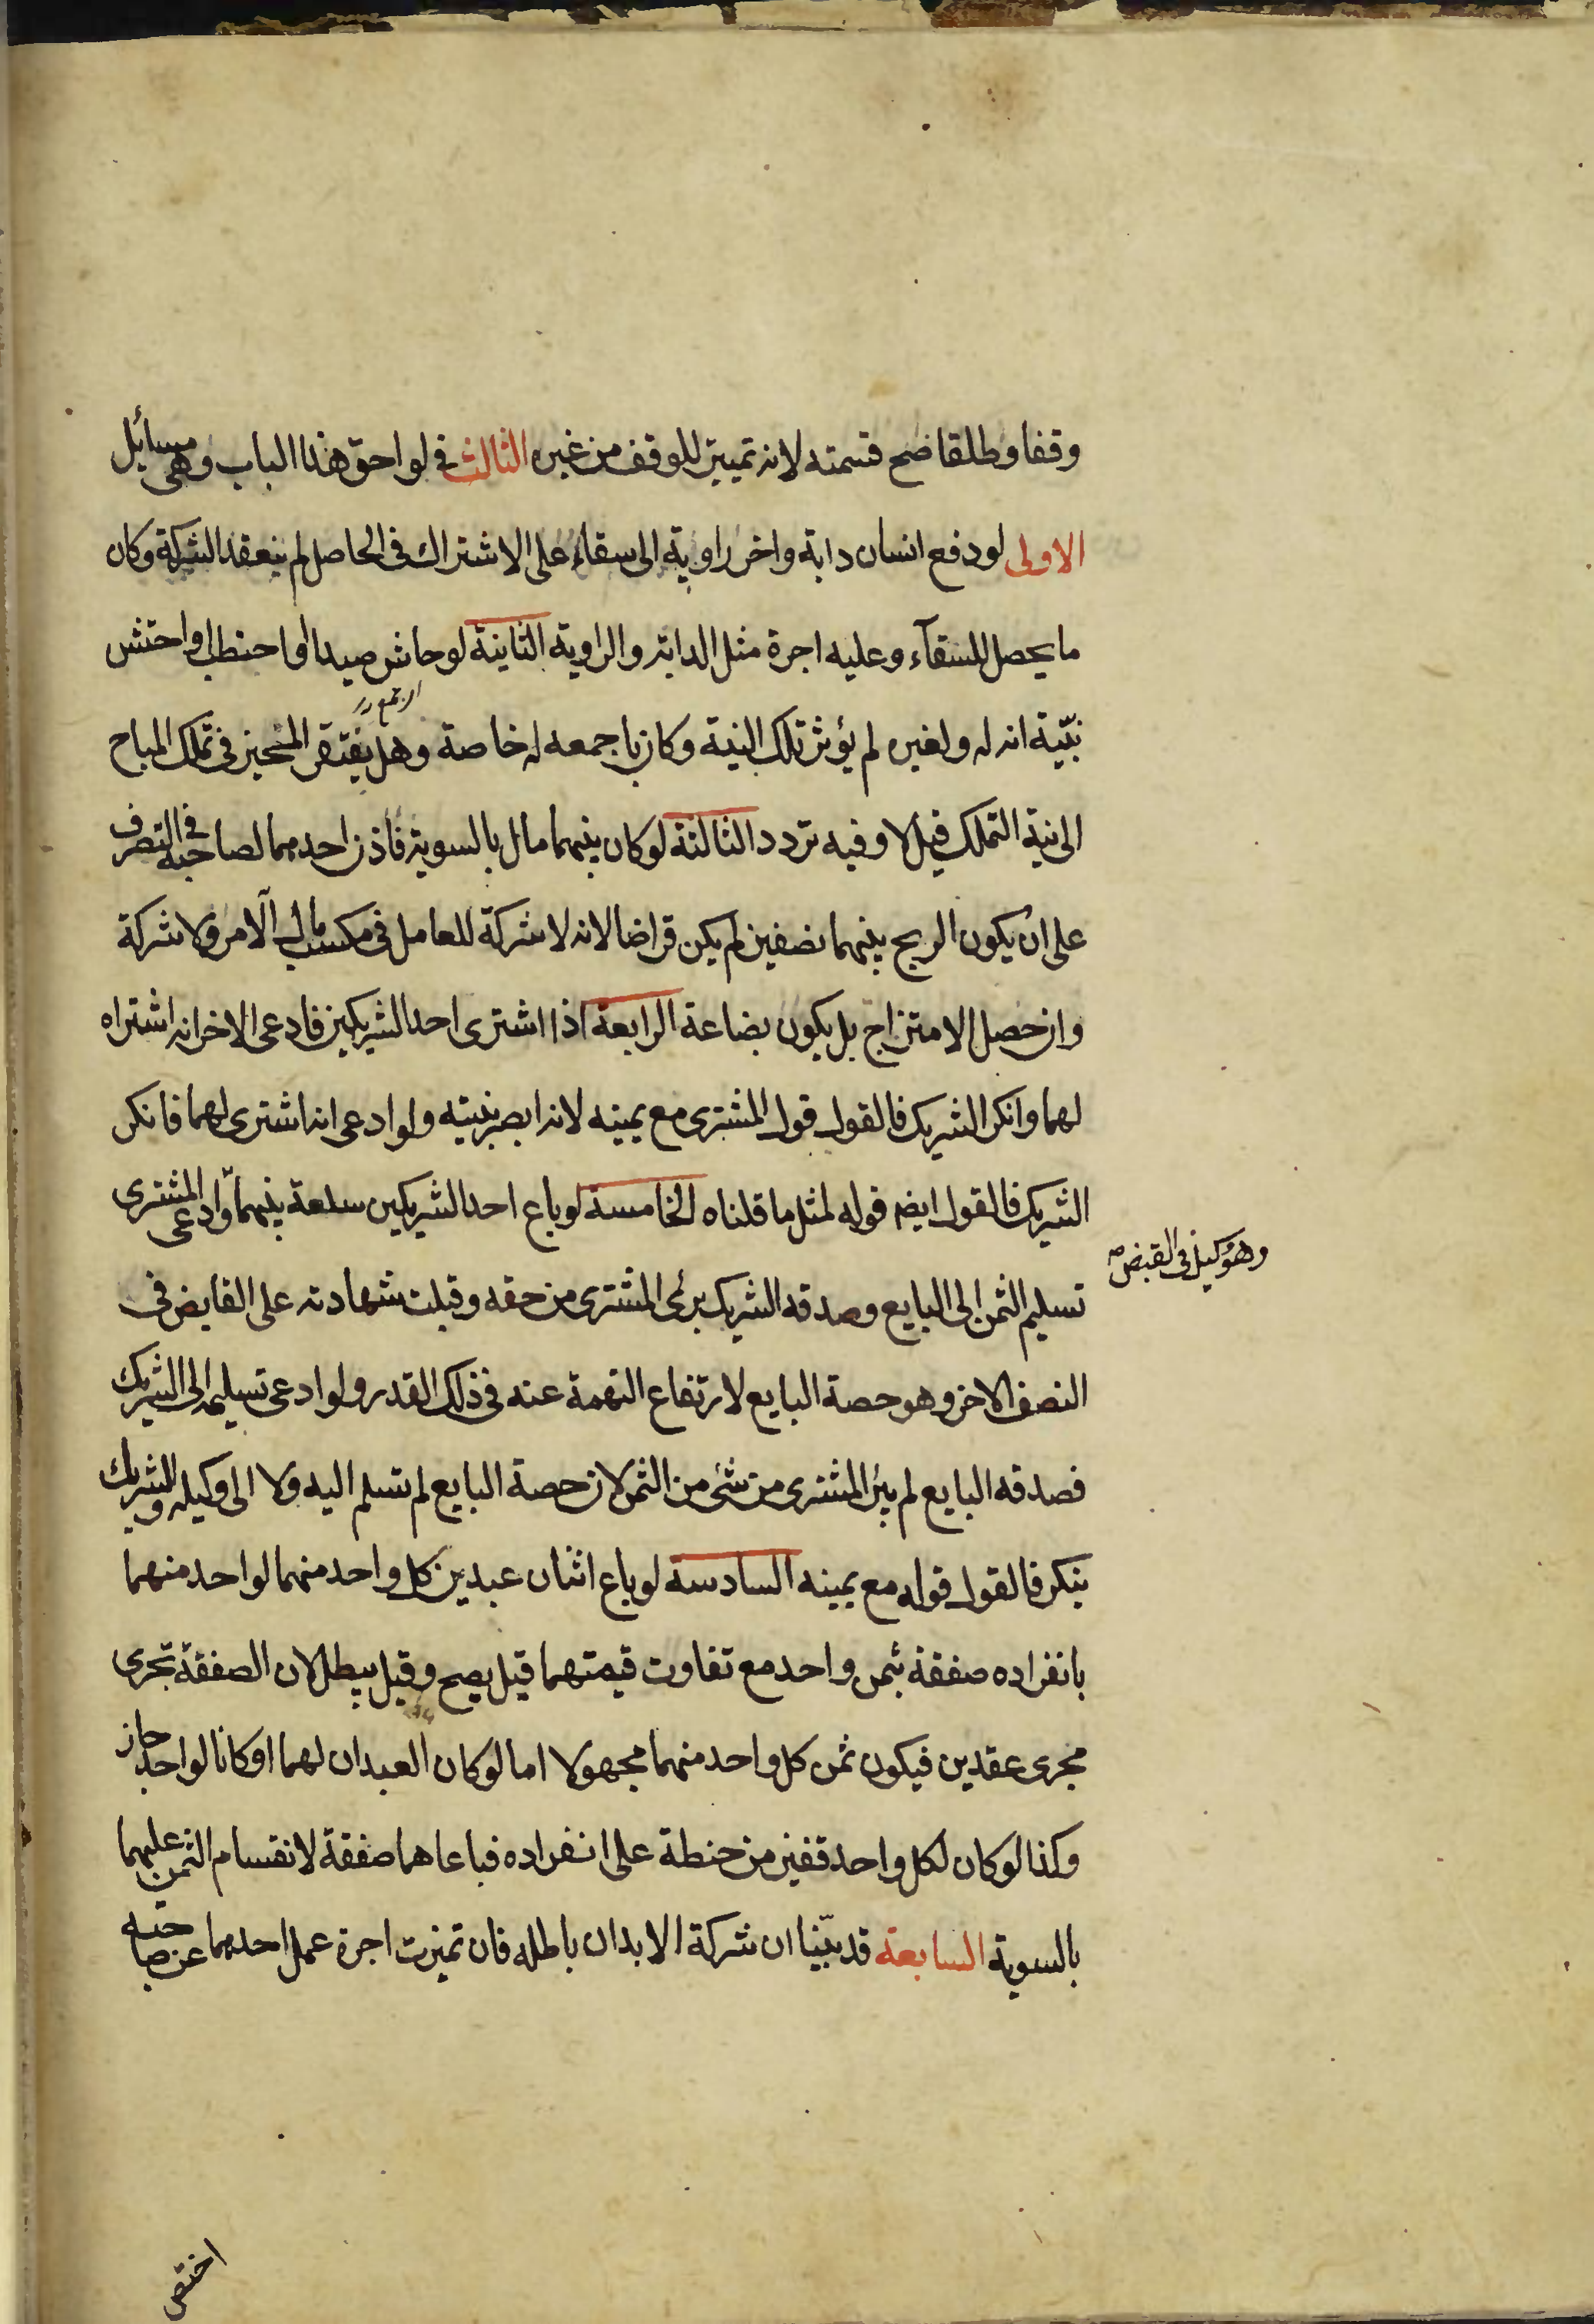 وقفا وطلقا صح قسمته لانه تمييز للوقف من غيره الثالث في لواحق هذا الباب وهي مسائل
الاولى لو دفع انسان دابة واخر راوية الى سقاء على الاشتراك في الحاصل لم ينعقد الشركة وكان
ما يحصل للسقآء وعليه اجرة مثل الدابة والراوية الثانية لو حاش صيدا او احتطب او احتش
بنيّة انه له ولغيره لم يؤثر تلك النية وكان باجمعه له خاصة وهل يفتقر المحيز في تملك المباح
الى نية التملك قيل لا وفيه تردد الثالثة لو كان بينهما مال بالسوية فاذن احدهما لصاحبه في التصرف
على ان يكون الربح بينهما نصفين لم يكن قراضا لانه لا شركة للعامل في مكسب مال الآمر ولا شركة
وان حصل الامتزاج بل يكون بضاعة الرابعة اذا اشترى احد الشريكين فادعى الاخر انه اشتراه
لهما وانكر الشريك فالقول قول المشترى مع يمينه لانه ابصر بنيته ولو ادعى انه اشترى لهما فانكر
الشريك فالقول ايضم قوله لمثل ما قلناه الخامسة لو باع احد الشريكين سلعة بينهما وادعى المشترى
وهو وكيل في القبض صه
تسليم الثمن الى البايع وصدقه الشريك برئ المشترى من حقه وقبلت شهادته على القابض في
النصف الاخر وهو حصة البايع لارتفاع التهمة عنه في ذلك القدر ولو ادعى تسليمه الى الشريك
فصدقه البايع لم يبرء المشترى من شئ من الثمن لان حصة البايع لم تسلم اليه ولا الى وكيله والشريك
ينكر فالقول قوله مع يمينه السادسة لو باع اثنان عبدين كل واحد منهما لواحد منهما
بانفراده صفقة بثمن واحد مع تفاوت قيمتهما قيل يصح وقيل يبطل لان الصفقة تجرى
مجرى عقدين فيكون ثمن كل واحد منهما مجهولا اما لو كان العبدان لهما او كانا لواحد جاز
وكذا لو كان لكل واحد قفيز من حنطة على انفراده فباعاهما صفقة لانقسام الثمن عليهما
بالسوية السابعة قد بيّنا ان شركة الابدان باطله فان تميزت اجرة عمل احدهما عن صاحبه
اختص